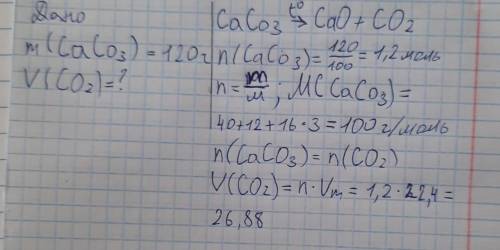 Дано
m(CaCo3) = 120г
V(CO2) = ?
CaCo3 t° → CaO + CO2
n(CaCO3) = 120/100 = 1,2 моль
n = m/м ; M(CaCo3) =
40+12+16·3 = 100г/моль
n(CaCO3) = n(CO2)
V(CO2) = n·Vm = 1,2·22,4 =
26,88